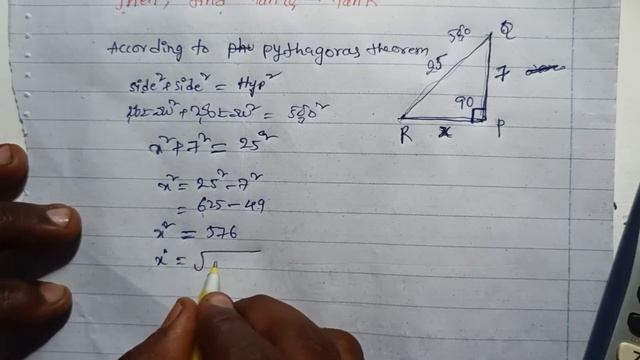 then, find
According to pythagoras theorem
side² + side² = Hyp²
x² + 7² = 25²
x² = 25² - 7²
= 625 - 49
x² = 576
x = √
Q
25
7
90
R
x
P